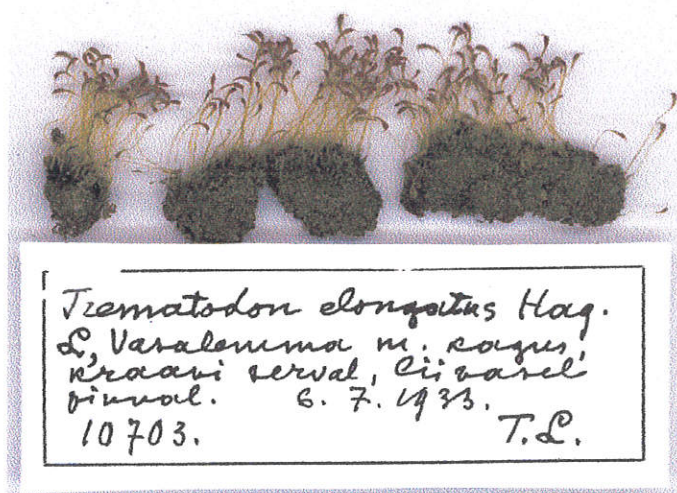 Trematodon elongatus Hag.
L, Vasalemma m. kagus,
kraavi serval, liivasel
pinnal. 6. 7. 1933.
10703. T.L.